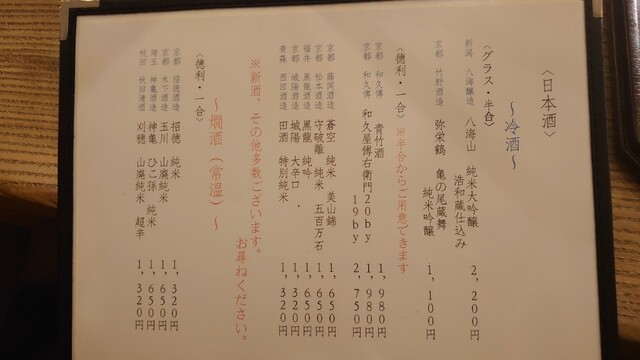 〈日本酒〉
～冷酒～
〈グラス・半合〉
新潟 八海醸造 八海山 純米大吟醸
浩和蔵仕込み 2,200円
京都 竹野酒造 弥栄鶴 亀の尾蔵舞
純米吟醸 1,100円
〈徳利・一合〉 ※半合からご用意できます
京都 和久傳 青竹酒 1,980円
京都 和久傳 和久屋傳右衛門20by 1,980円
19by 2,750円
京都 藤岡酒造 蒼空 純米 美山錦 1,650円
京都 松本酒造 守破離 純米 五百万石 1,650円
福井 黒龍酒造 黒龍 純吟 1,650円
京都 城陽酒造 城陽 大辛口 1,320円
青森 西田酒造 田酒 特別純米 1,320円
※新酒、その他多数ございます。
お尋ねください。
～燗酒（常温）～
〈徳利・一合〉
京都 招徳酒造 招徳 純米 1,320円
京都 木下酒造 玉川 山廃純米 1,650円
埼玉 神亀酒造 神亀 ひこ孫 純米 1,650円
秋田 秋田清酒 刈穂 山廃純米 超辛 1,320円